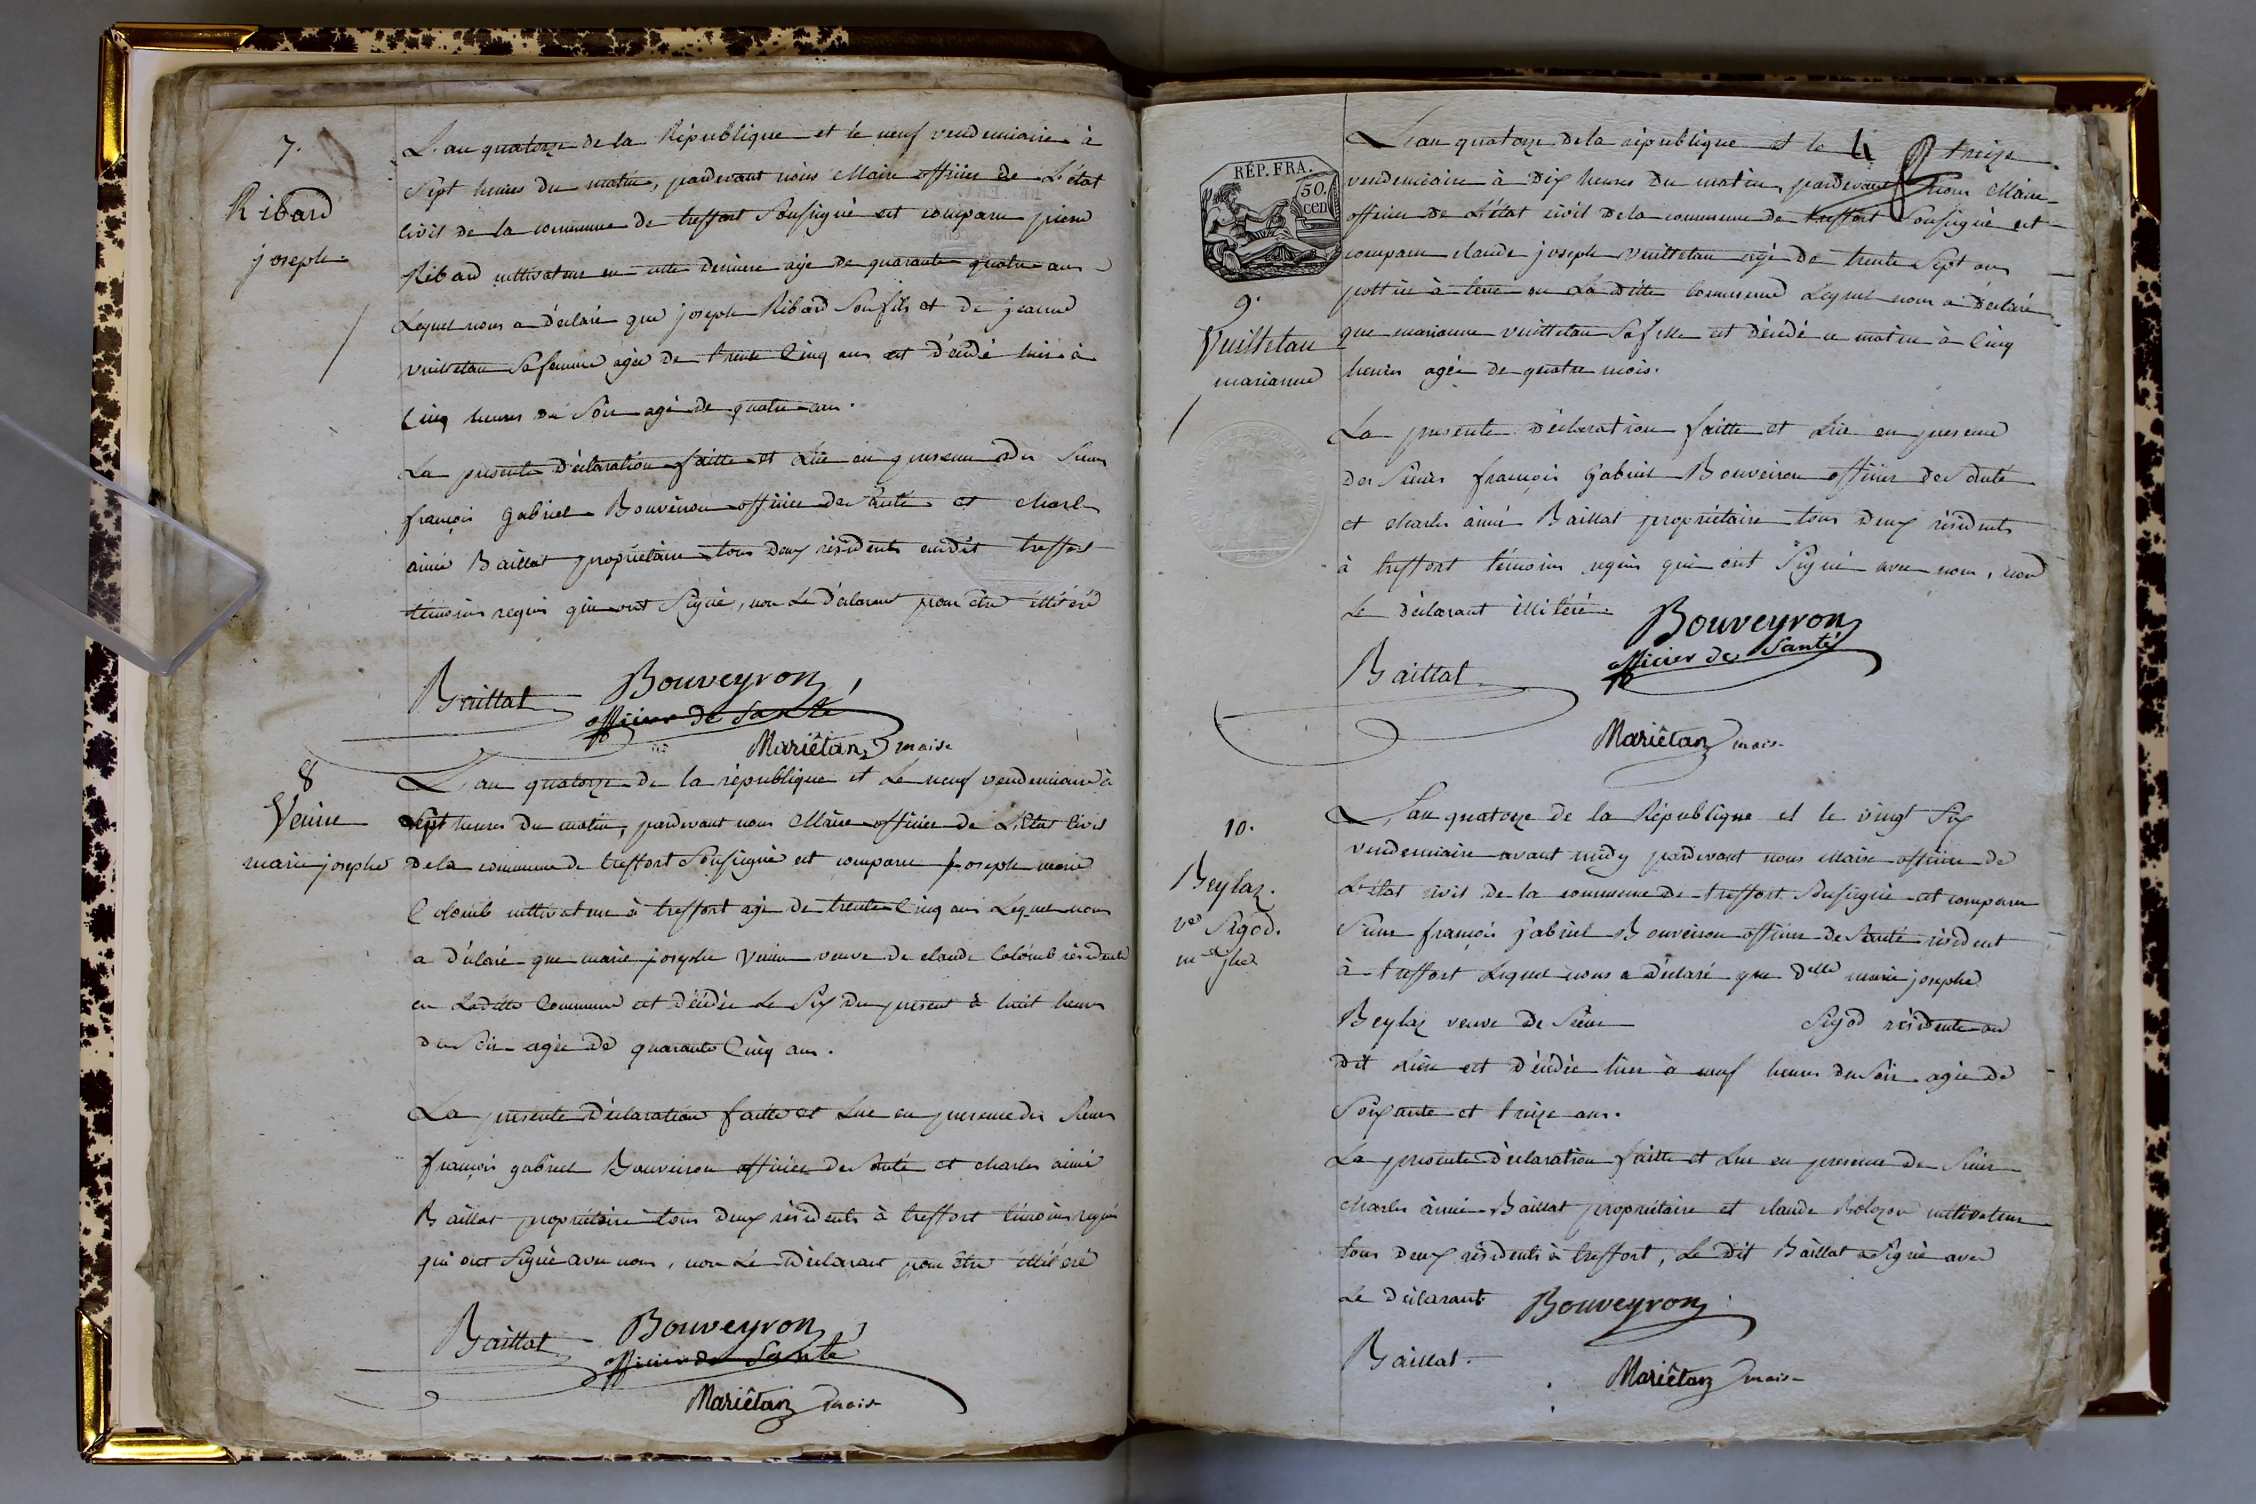 7.
Ribard
joseph.
L'an quatorze de la République et le neuf vendemiaire à
Sept heures du matin, pardevant nous Maire officier de L'état
civil de la commune de treffort Soussigné est comparu pierre
Ribard cultivateur en cette dernière agé de quarante quatre ans
Lequel nous a déclaré que joseph Ribard Son fils et de jeanne
vuilletan Sa femme agée de trente Cinq ans est décédé hier à
Cinq heures du Soir agé de quatre ans.
La presente déclaration faitte et Lüe en presence des Sieurs
françois gabriel Bouveiron officier de Santé et charles
aimé Baillat propriétaire tous deux résidents audit treffort
témoins requis qui ont Signé, non Le déclarant pour être illitéré
Baillat
Bouveyron
officier de Santé
Mariêtan maire
8
Venin
marie josephe
L'an quatorze de la république et Le neuf vendemiaire à
Sept heures du matin, pardevant nous Maire officier de L'état Civil
de la commune de treffort Soussigné est comparu joseph marie
Colomb cultivateur à treffort agé de trente Cinq ans Lequel nous
a déclaré que marie josephe venin veuve de claude Colomb résidente
en Laditte Commune est décédée Le Six du present à huit heures
du Soir agée de quarante Cinq ans.
La presente déclaration faitte et Lue en presence des Sieurs
françois gabriel Bouveiron officier de Santé et charles aimé
Baillat propriétaire tous deux résidents à treffort témoins requis
qui ont Signé avec nous, non Le déclarant pour être illitéré
Baillat
Bouveyron
officier de Santé
Mariêtan maire
RÉP. FRA.
50
cen
9.
Vuilletan
marianne
L'an quatorze de la république et le treize
vendemiaire à Dix heures du matin, pardevant nous Maire
officier de L'état civil de la commune de treffort Soussigné est
comparu claude joseph vuilletan agé de trente Sept ans
pottier à terre en La ditte Commune Lequel nous a déclaré
que marianne vuilletan Sa fille est décédé ce matin à Cinq
heures agée de quatre mois.
La presente déclaration faitte et Lüe en presence
des Sieurs françois gabriel Bouveiron officier de Santé
et charles aimé Baillat propriétaire tous deux résidents
à treffort témoins requis qui ont Signé avec nous, non
Le déclarant illitéré.
Bouveyron
officier de Santé
Baillat
Mariêtan maire
10.
Beylaz.
ve Sigod.
L'an quatorze de la République et le vingt Six
vendemiaire avant midy pardevant nous Maire officier de
L'état civil de la commune de treffort Soussigné est comparu
Sieur françois gabriel Bouveiron officier de Santé résident
à treffort Lequel nous a déclaré que delle marie josephe
Beylaz veuve de Sieur Sigod résidente au
dit Lieu est décédée hier à neuf heures du Soir agée de
Soixante et treize ans.
La presente déclaration faitte et Lue en presence de Sieur
charles aimé Baillat propriétaire et claude Bolozon cultivateur
tous deux résidents à treffort, Le dit Baillat a Signé avec
Le déclarant
Bouveyron
Baillat.
Mariêtan maire